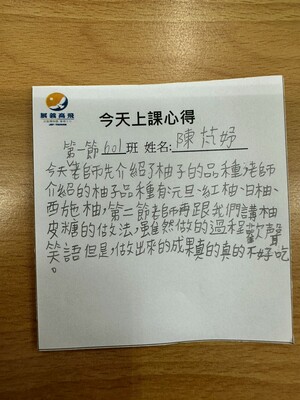 展義高飛
今天上課心得
第一節601班 姓名:陳芃妤
今天老師先介紹了柚子的品種老師
介紹的柚子品種有元旦、紅柚、日柚、
西施柚,第二節老師再跟我們講柚
皮糖的做法,雖然做的過程歡聲
笑語但是,做出來的成果真的真的不好吃
。